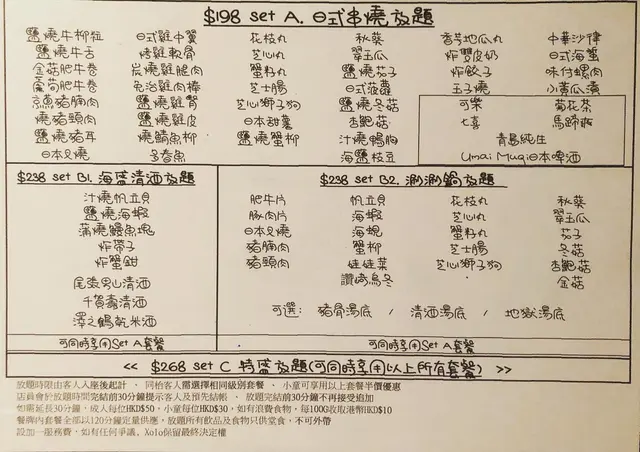 $198 set A. 日式串燒放題
鹽燒牛柳粒 日式雞中翼 花枝丸 秋葵 香芋地瓜丸 中華沙律
鹽燒牛舌 烤雞軟骨 芝心丸 翠玉瓜 炸雙皮奶 日式海蜇
金菇肥牛卷 炭燒雞腿肉 蟹籽丸 鹽燒茄子 炸餃子 味付螺肉
露筍肥牛卷 免治雞肉棒 芝士腸 日式菠蘿 玉子燒 小黃瓜漬
京蔥豬腩肉 鹽燒雞腎 芝心獅子狗 鹽燒冬菇 可樂 菊花茶
燒豬頸肉 鹽燒雞皮 日本甜薯 杏鮑菇 七喜 馬蹄爽
鹽燒豬耳 燒鯖魚柳 鹽燒蟹柳 汁燒鴨胸 青島純生
日本叉燒 多春魚 海鹽枝豆 Umai Mugi日本啤酒
$238 set B1. 海盛清酒放題
汁燒帆立貝
鹽燒海蝦
蒲燒鰻魚塊
炸帶子
炸蟹鉗
尾張男山清酒
千賀壽清酒
澤之鶴乾米酒
可同時享用Set A套餐
$238 set B2. 涮涮鍋放題
肥牛片 帆立貝 花枝丸 秋葵
豚肉片 海蝦 芝心丸 翠玉瓜
日本叉燒 海蜆 蟹籽丸 茄子
豬腩肉 蟹柳 芝士腸 冬菇
豬頸肉 娃娃菜 芝心獅子狗 杏鮑菇
讚崎烏冬 金菇
可選: 豬骨湯底 / 清酒湯底 / 地獄湯底
可同時享用Set A套餐
<< $268 set C 特盛放題(可同時享用以上所有套餐) >>
放題時限由客人人座後起計 、同枱客人需選擇相同級別套餐 、 小童可享用以上套餐半價優惠
店員會於放題時間完結前30分鐘提示客人及預先結帳 、 放題完結前30分鐘不再接受追加
如需延長30分鐘, 成人每位HKD$50, 小童每位HKD$30, 如有浪費食物, 每100G收取港幣HKD$10
餐牌內套餐全部以120分鐘定量供應, 放題所有飲品及食物只供堂食, 不可外帶
設加一服務費, 如有任何爭議、XoIo保留最終決定權